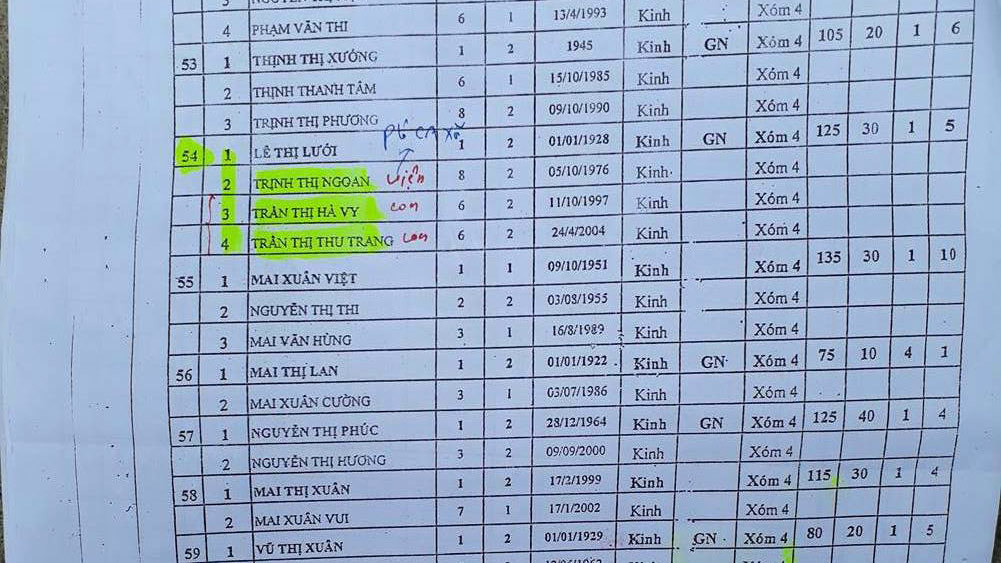 4 PHẠM VĂN THI 6 1 13/4/1993 Kinh Xóm 4
53 1 THỊNH THỊ XƯỚNG 1 2 1945 Kinh GN Xóm 4 105 20 1 6
2 THỊNH THANH TÂM 6 1 15/10/1985 Kinh Xóm 4
3 TRỊNH THỊ PHƯƠNG 8 2 09/10/1990 Kinh Xóm 4
54 1 LÊ THỊ LƯỚI 1 2 01/01/1928 Kinh GN Xóm 4 125 30 1 5
2 TRỊNH THỊ NGOAN 8 2 05/10/1976 Kinh Xóm 4
3 TRẦN THỊ HÀ VY con 6 2 11/10/1997 Kinh Xóm 4
4 TRẦN THỊ THU TRANG con 6 2 24/4/2004 Kinh Xóm 4
55 1 MAI XUÂN VIỆT 1 1 09/10/1951 Kinh Xóm 4 135 30 1 10
2 NGUYỄN THỊ THI 2 2 03/08/1955 Kinh Xóm 4
3 MAI VĂN HÙNG 3 1 16/8/1989 Kinh Xóm 4
56 1 MAI THỊ LAN 1 2 01/01/1922 Kinh GN Xóm 4 75 10 4 1
2 MAI XUÂN CƯỜNG 3 1 03/07/1986 Kinh Xóm 4
57 1 NGUYỄN THỊ PHÚC 1 2 28/12/1964 Kinh GN Xóm 4 125 40 1 4
2 NGUYỄN THỊ HƯƠNG 3 2 09/09/2000 Kinh Xóm 4
58 1 MAI THỊ XUÂN 1 2 17/2/1999 Kinh Xóm 4 115 30 1 4
2 MAI XUÂN VUI 7 1 17/1/2002 Kinh Xóm 4
59 1 VŨ THỊ XUÂN 1 2 01/01/1929 Kinh GN Xóm 4 80 20 1 5